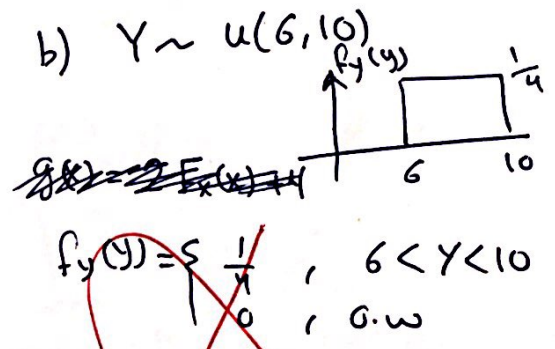 b) Y ~ u(6,10)
fy(y)
1/4
6 10
fy(y) = { 1/4 , 6 < Y < 10
0 , o.w